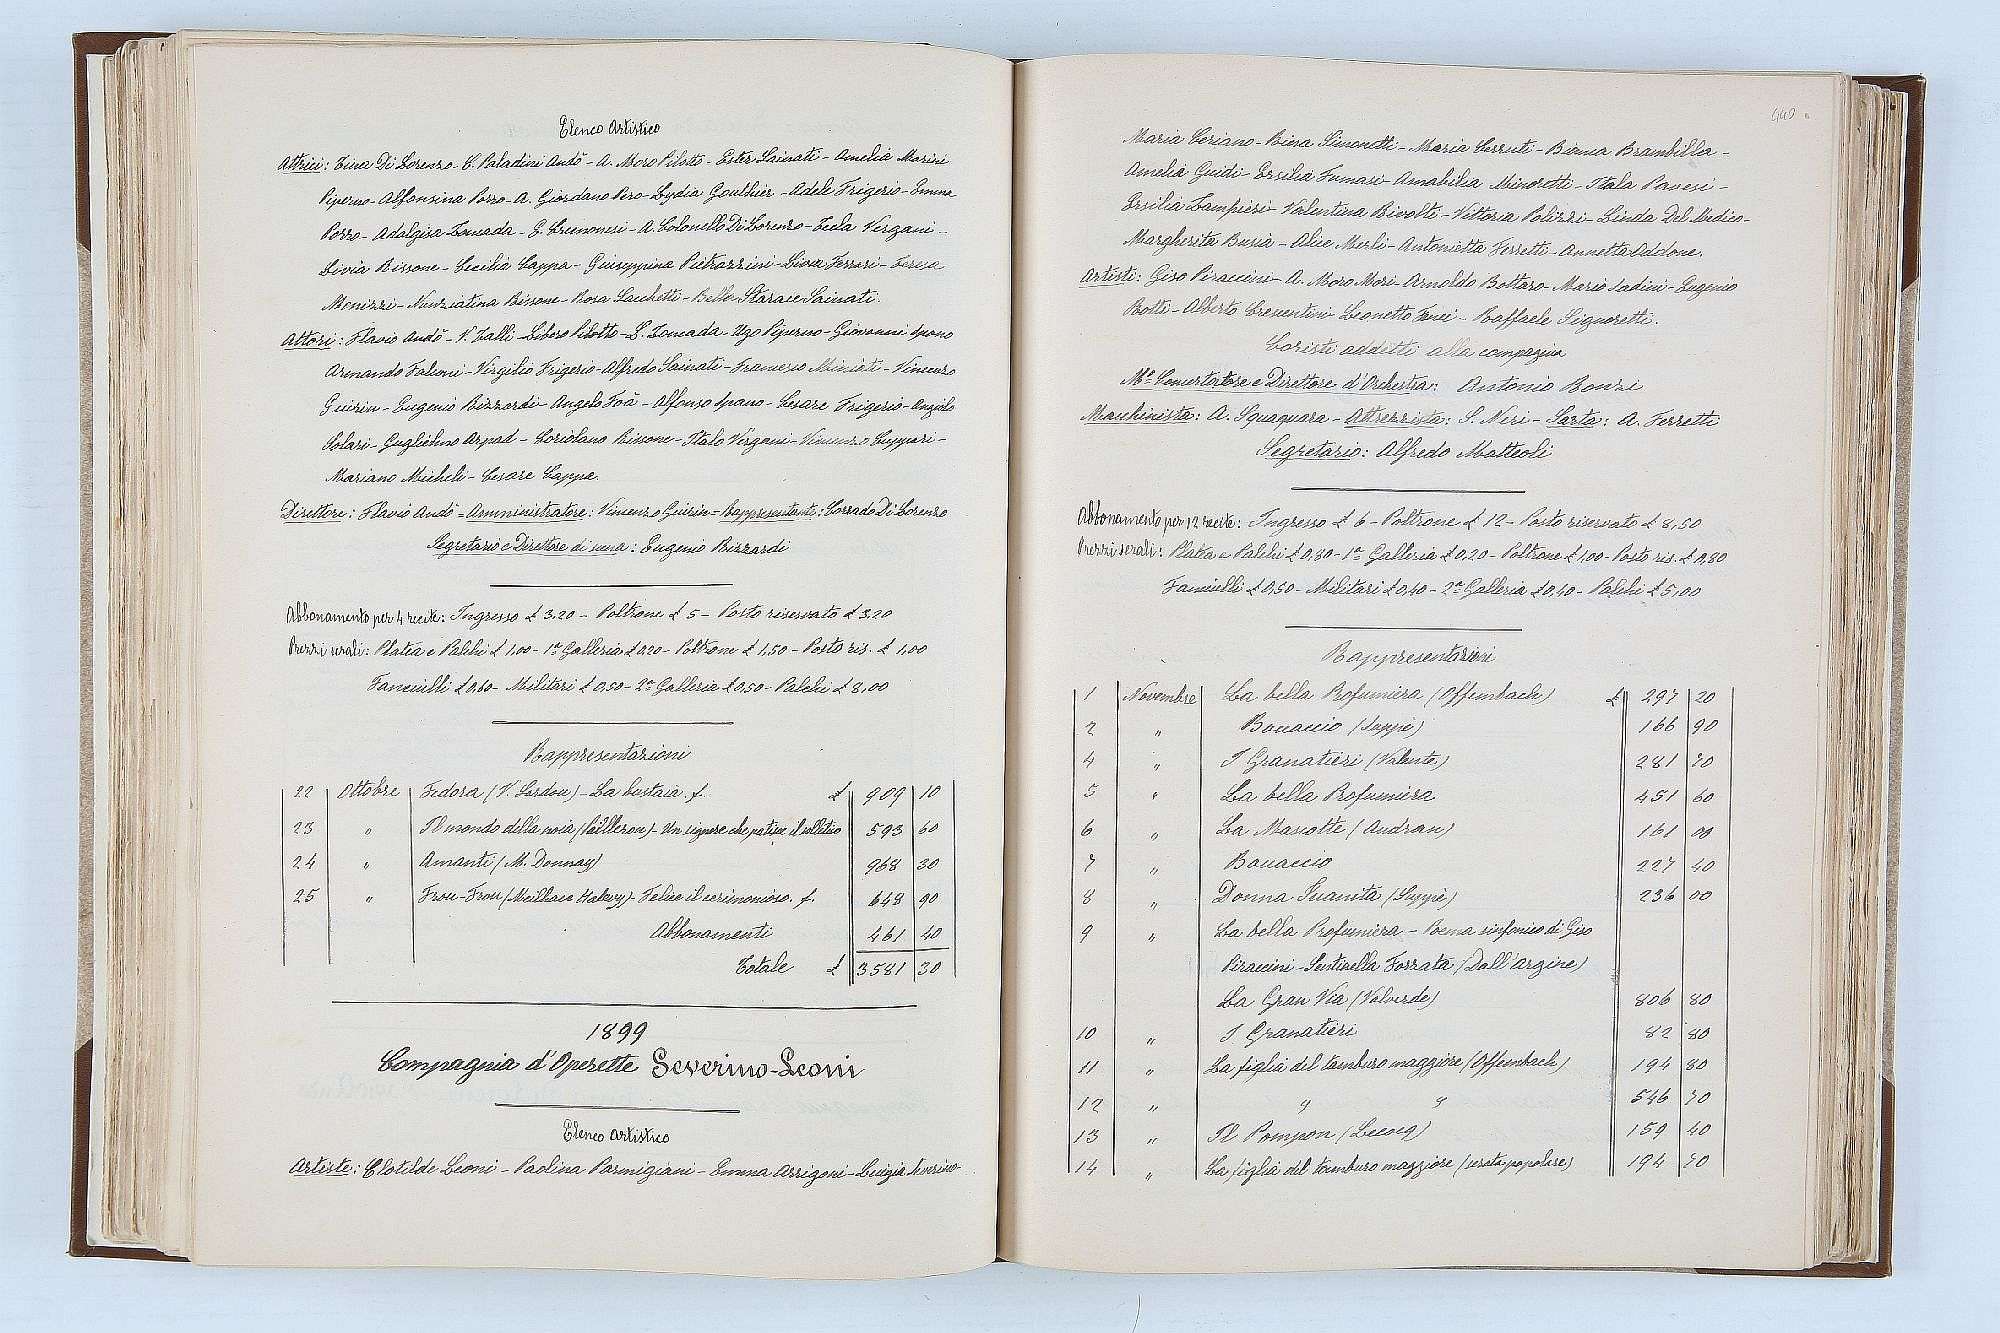 Elenco Artistico
Attrici: Tina Di Lorenzo - C. Paladini Andò - A. Moro Pilotto - Ester Sainati - Amelia Marini
Piperno - Alfonsina Pozzo - A. Giordano Pero - Lydia Goulhier - Adele Frigerio - Emma
Pozzo - Adalgisa Tomada - E. Cremonesi - A. Colonello Di Lorenzo - Tecla Vergani -
Livia Bissone - Cecilia Cappa - Giuseppina Pietrazzini - Livia Ferrari - Teresa
Monizzi - Nunziatina Bissone - Rosa Sacchetti - Bella Starace Sainati.
Attori: Flavio Andò - V. Talli - Libero Pilotto - L. Tomada - Ugo Piperno - Giovanni Spano
Armando Falconi - Virgilio Frigerio - Alfredo Sainati - Francesco Miniati - Vincenzo
Guirin - Eugenio Bizzardi - Angelo Foà - Alfonso Spano - Cesare Frigerio - Angiolo
Solari - Guglielmo Arpad - Coriolano Bissone - Italo Vergani - Vincenzo Suppari -
Mariano Micheli - Cesare Cappa.
Direttore: Flavio Andò - Amministratore: Vincenzo Guirin - Rappresentante: Corrado Di Lorenzo
Segretario e Direttore di scena: Eugenio Bizzardi
Abbonamento per 4 recite: Ingresso £ 3.20 - Poltrone £ 5 - Posto riservato £ 3.20
Prezzi serali: Platea e Palchi £ 1,00 - 1a Galleria £ 0,20 - Poltrone £ 1,50 - Posto ris. £ 1,00
Fanciulli £ 0,60 - Militari £ 0,50 - 2a Galleria £ 0,50 - Palchi £ 8,00
Rappresentazioni
22 Ottobre Fedora (V. Sardou) - La bustaia. f. £ 909 10
23 " Il mondo della noia (Pailleron) - Un signore che patisce il solletico 593 60
24 " Amanti (M. Donnay) 968 30
25 " Frou-Frou (Meilhac e Halevy) - Felice il cerimonioso. f. 648 90
Abbonamenti 461 40
Totale £ 3581 30
1899
Compagnia d'Operette Severino-Leoni
Elenco Artistico
Artiste: Clotilde Leoni - Paolina Parmigiani - Emma Arrigoni - Luigia Severino
440
Maria Soriano - Bina Simonetti - Maria Cerruti - Bianca Brambilla -
Amelia Guidi - Ersilia Fumasi - Amabilia Minoretti - Itala Pavesi -
Ersilia Lampieri - Valentina Rivolti - Vittoria Polizzi - Linda Del Medico -
Margherita Busia - Alice Merli - Antonietta Ferretti - Annetta Oddone.
Artisti: Giso Piraccini - A. Moro Mori - Arnoldo Bottaro - Mario Ladini - Eugenio
Botti - Alberto Creventini Leonetto Fenci - Raffaele Signoretti.
Coristi addetti alla compagnia
Mo Concertatore e Direttore d'Orchestra: Antonio Bonzi
Macchinista: A. Squaquara - Attrezzista: S. Neri - Sarta: A. Ferretti
Segretario: Alfredo Matteoli
Abbonamento per 12 recite: Ingresso £ 6 - Poltrone £ 12 - Posto riservato £ 8,50
Prezzi serali: Platea e Palchi £ 0,80 - 1a Galleria £ 0,20 - Poltrone £ 1,00 - Posto ris. £ 0,80
Fanciulli £ 0,50 - Militari £ 0,40 - 2a Galleria £ 0,40 - Palchi £ 5,00
Rappresentazioni
1 Novembre La bella Profumiera (Offembach) £ 297 20
2 " Boccaccio (Suppè) 166 90
4 " I Granatieri (Valente) 281 70
5 " La bella Profumiera 451 60
6 " La Mascotte (Audran) 161 00
7 " Boccaccio 227 40
8 " Donna Juanita (Suppè) 236 00
9 " La bella Profumiera - Poema sinfonico di Giso
Piraccini - Sentinella Forzata (Dall'Argine)
La Gran Via (Valverde) 806 80
10 " I Granatieri 82 80
11 " La figlia del tamburo maggiore (Offembach) 194 80
12 " " " 546 70
13 " Il Pompon (Lecocq) 159 40
14 " La figlia del tamburo maggiore (serata popolare) 194 70